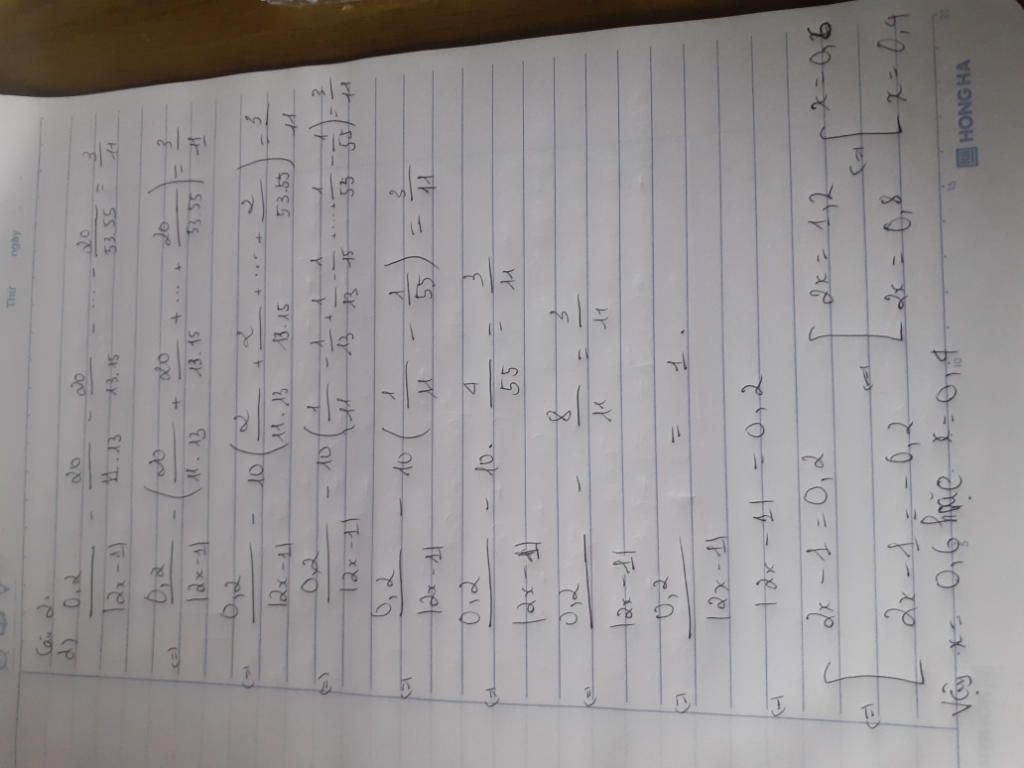 Thứ ngày
Câu 2.
d) 0,2/|2x-1| - 20/11.13 - 20/13.15 - ... - 20/53.55 = 3/11
(=) 0,2/|2x-1| - (20/11.13 + 20/13.15 + ... + 20/53.55) = 3/11
(=) 0,2/|2x-1| - 10(2/11.13 + 2/13.15 + ... + 2/53.55) = 3/11
(=) 0,2/|2x-1| - 10(1/11 - 1/13 + 1/13 - 1/15 + ... 1/53 - 1/55) = 3/11
(=) 0,2/|2x-1| - 10(1/11 - 1/55) = 3/11
(=) 0,2/|2x-1| - 10. 4/55 = 3/11
(=) 0,2/|2x-1| - 8/11 = 3/11
(=) 0,2/|2x-1| = 1.
(=) |2x-1| = 0,2
(=) [2x-1 = 0,2 (=) [2x = 1,2 (=) [x = 0,6
[2x-1 = -0,2 [2x = 0,8 [x = 0,4
Vậy x = 0,6 hoặc x = 0,4
5 10 15 20
HONG HA